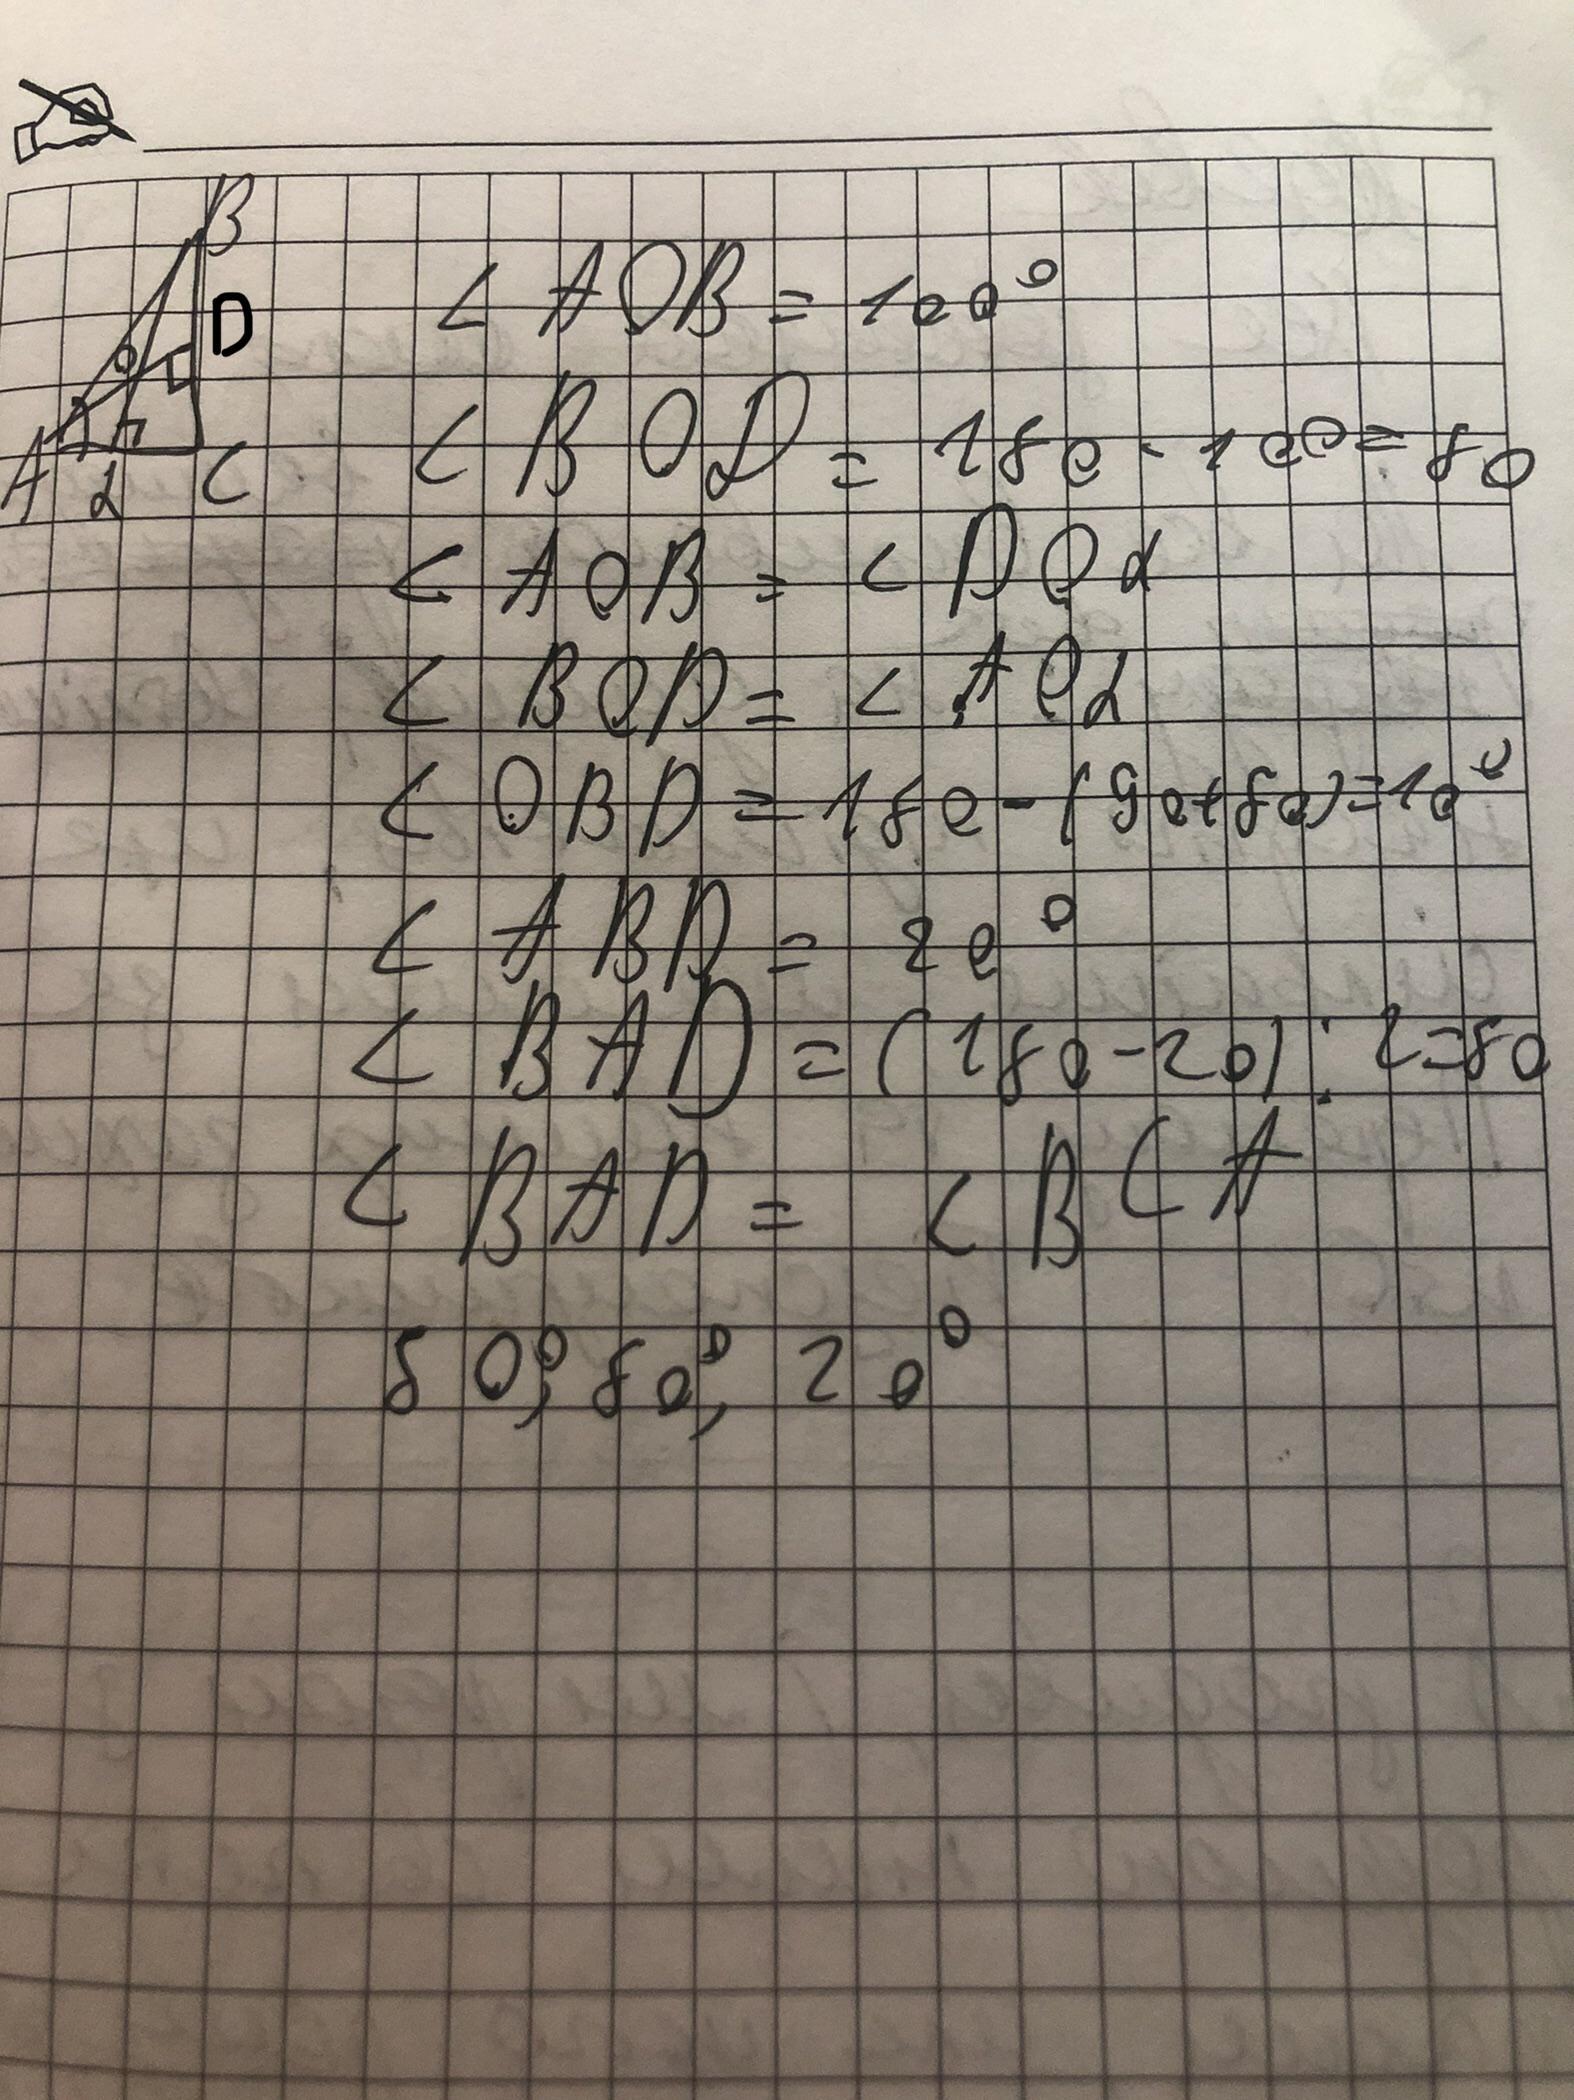 B
D
O
A L C
< AOB = 100°
< BOD = 180 - 100 = 80
< AOB = < DOL
< BOD = < AOL
< OBD = 180 - (90+80) = 10°
< ABD = 20°
< BAD = (180 - 20) : 2 = 80
< BAD = < BCA
80°; 80°, 20°